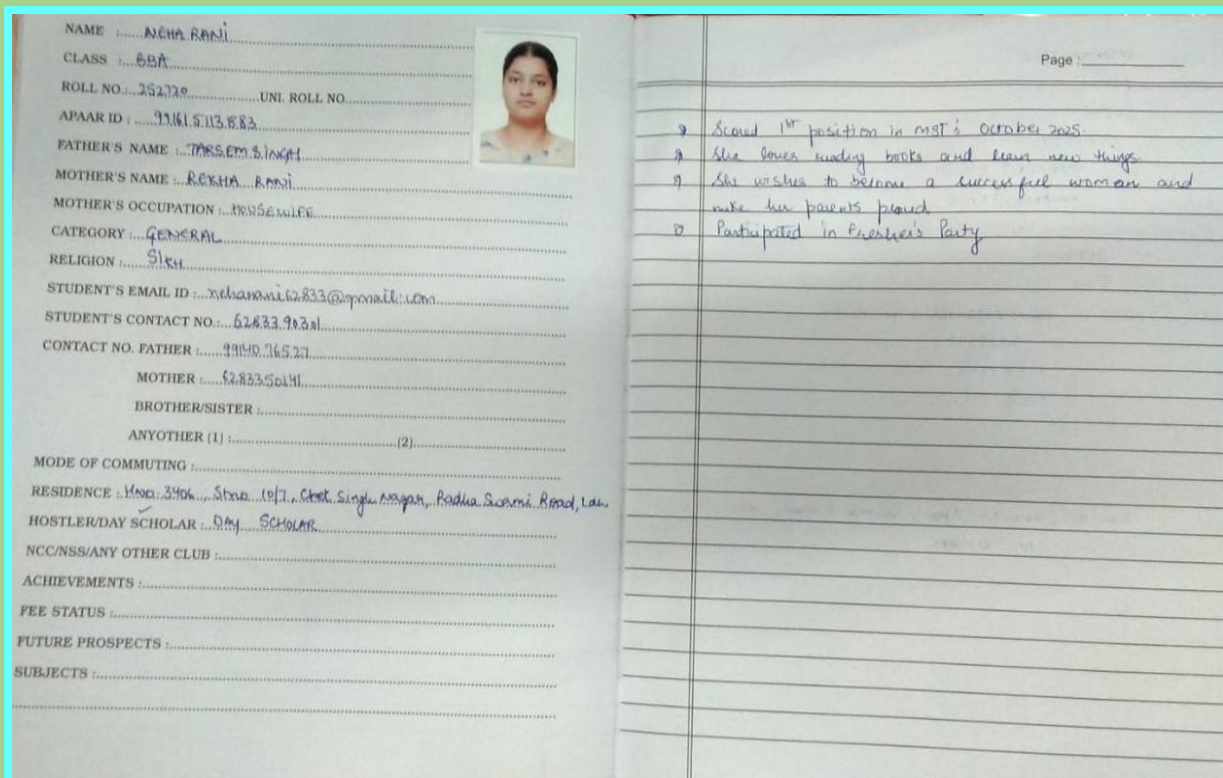 NAME : NEHA RANI
CLASS : BBA
ROLL NO. : 252720 UNI. ROLL NO.
APAAR ID : 991615113883
FATHER'S NAME : TARSEM SINGH
MOTHER'S NAME : REKHA RANI
MOTHER'S OCCUPATION : HOUSEWIFE
CATEGORY : GENERAL
RELIGION : SIKH
STUDENT'S EMAIL ID : neharani62833@gmail.com
STUDENT'S CONTACT NO. : 62833 90301
CONTACT NO. FATHER : 99140 76527
MOTHER : 62833 50141
BROTHER/SISTER :
ANYOTHER (1) : (2)
MODE OF COMMUTING :
RESIDENCE : Hno. 3406, Stno 10/7, Chet Singh Nagar, Radha Swami Road, Ldh
HOSTLER/DAY SCHOLAR : DAY SCHOLAR
NCC/NSS/ANY OTHER CLUB :
ACHIEVEMENTS :
FEE STATUS :
FUTURE PROSPECTS :
SUBJECTS :
Page :
Scored 1st position in MST's October 2025.
She loves reading books and learn new things
She wishes to become a successful woman and
make her parents proud
Participated in Fresher's Party